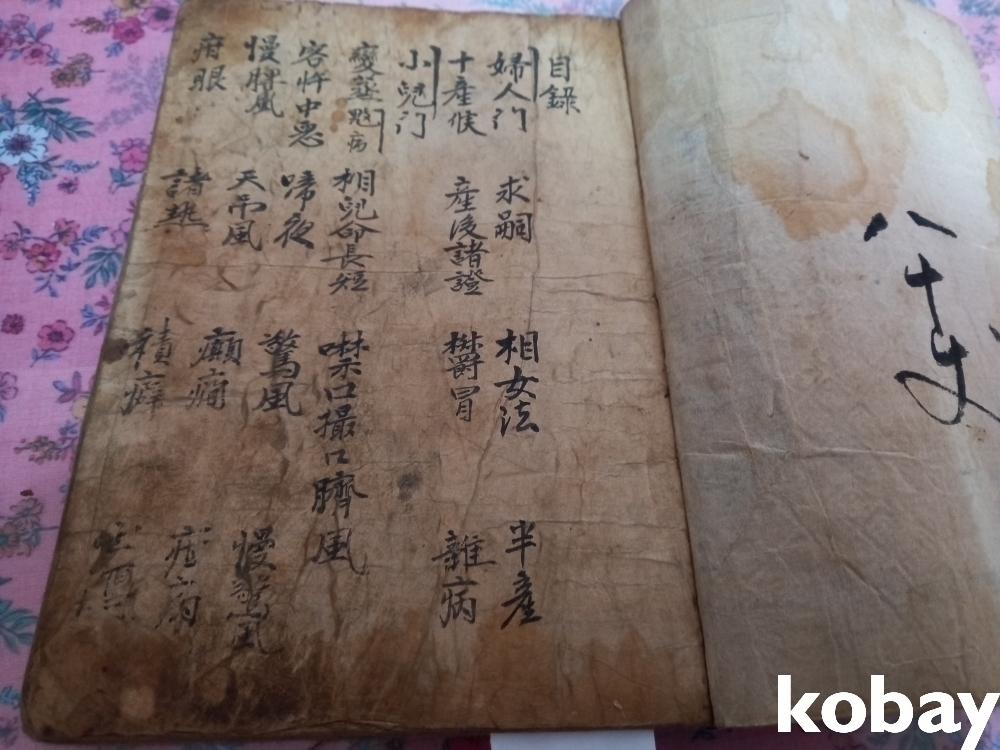 目錄
婦人门 求嗣 相女法 半産
十産候 産後諸證 欝冒 雜病
小兒门
變蒸 病 相兒命長短 噤口撮口臍風
客忤中悪 啼夜 驚風 慢驚風
慢脾風 天吊風 癲癎
疳眼 諸熱 積癖
八
kobay